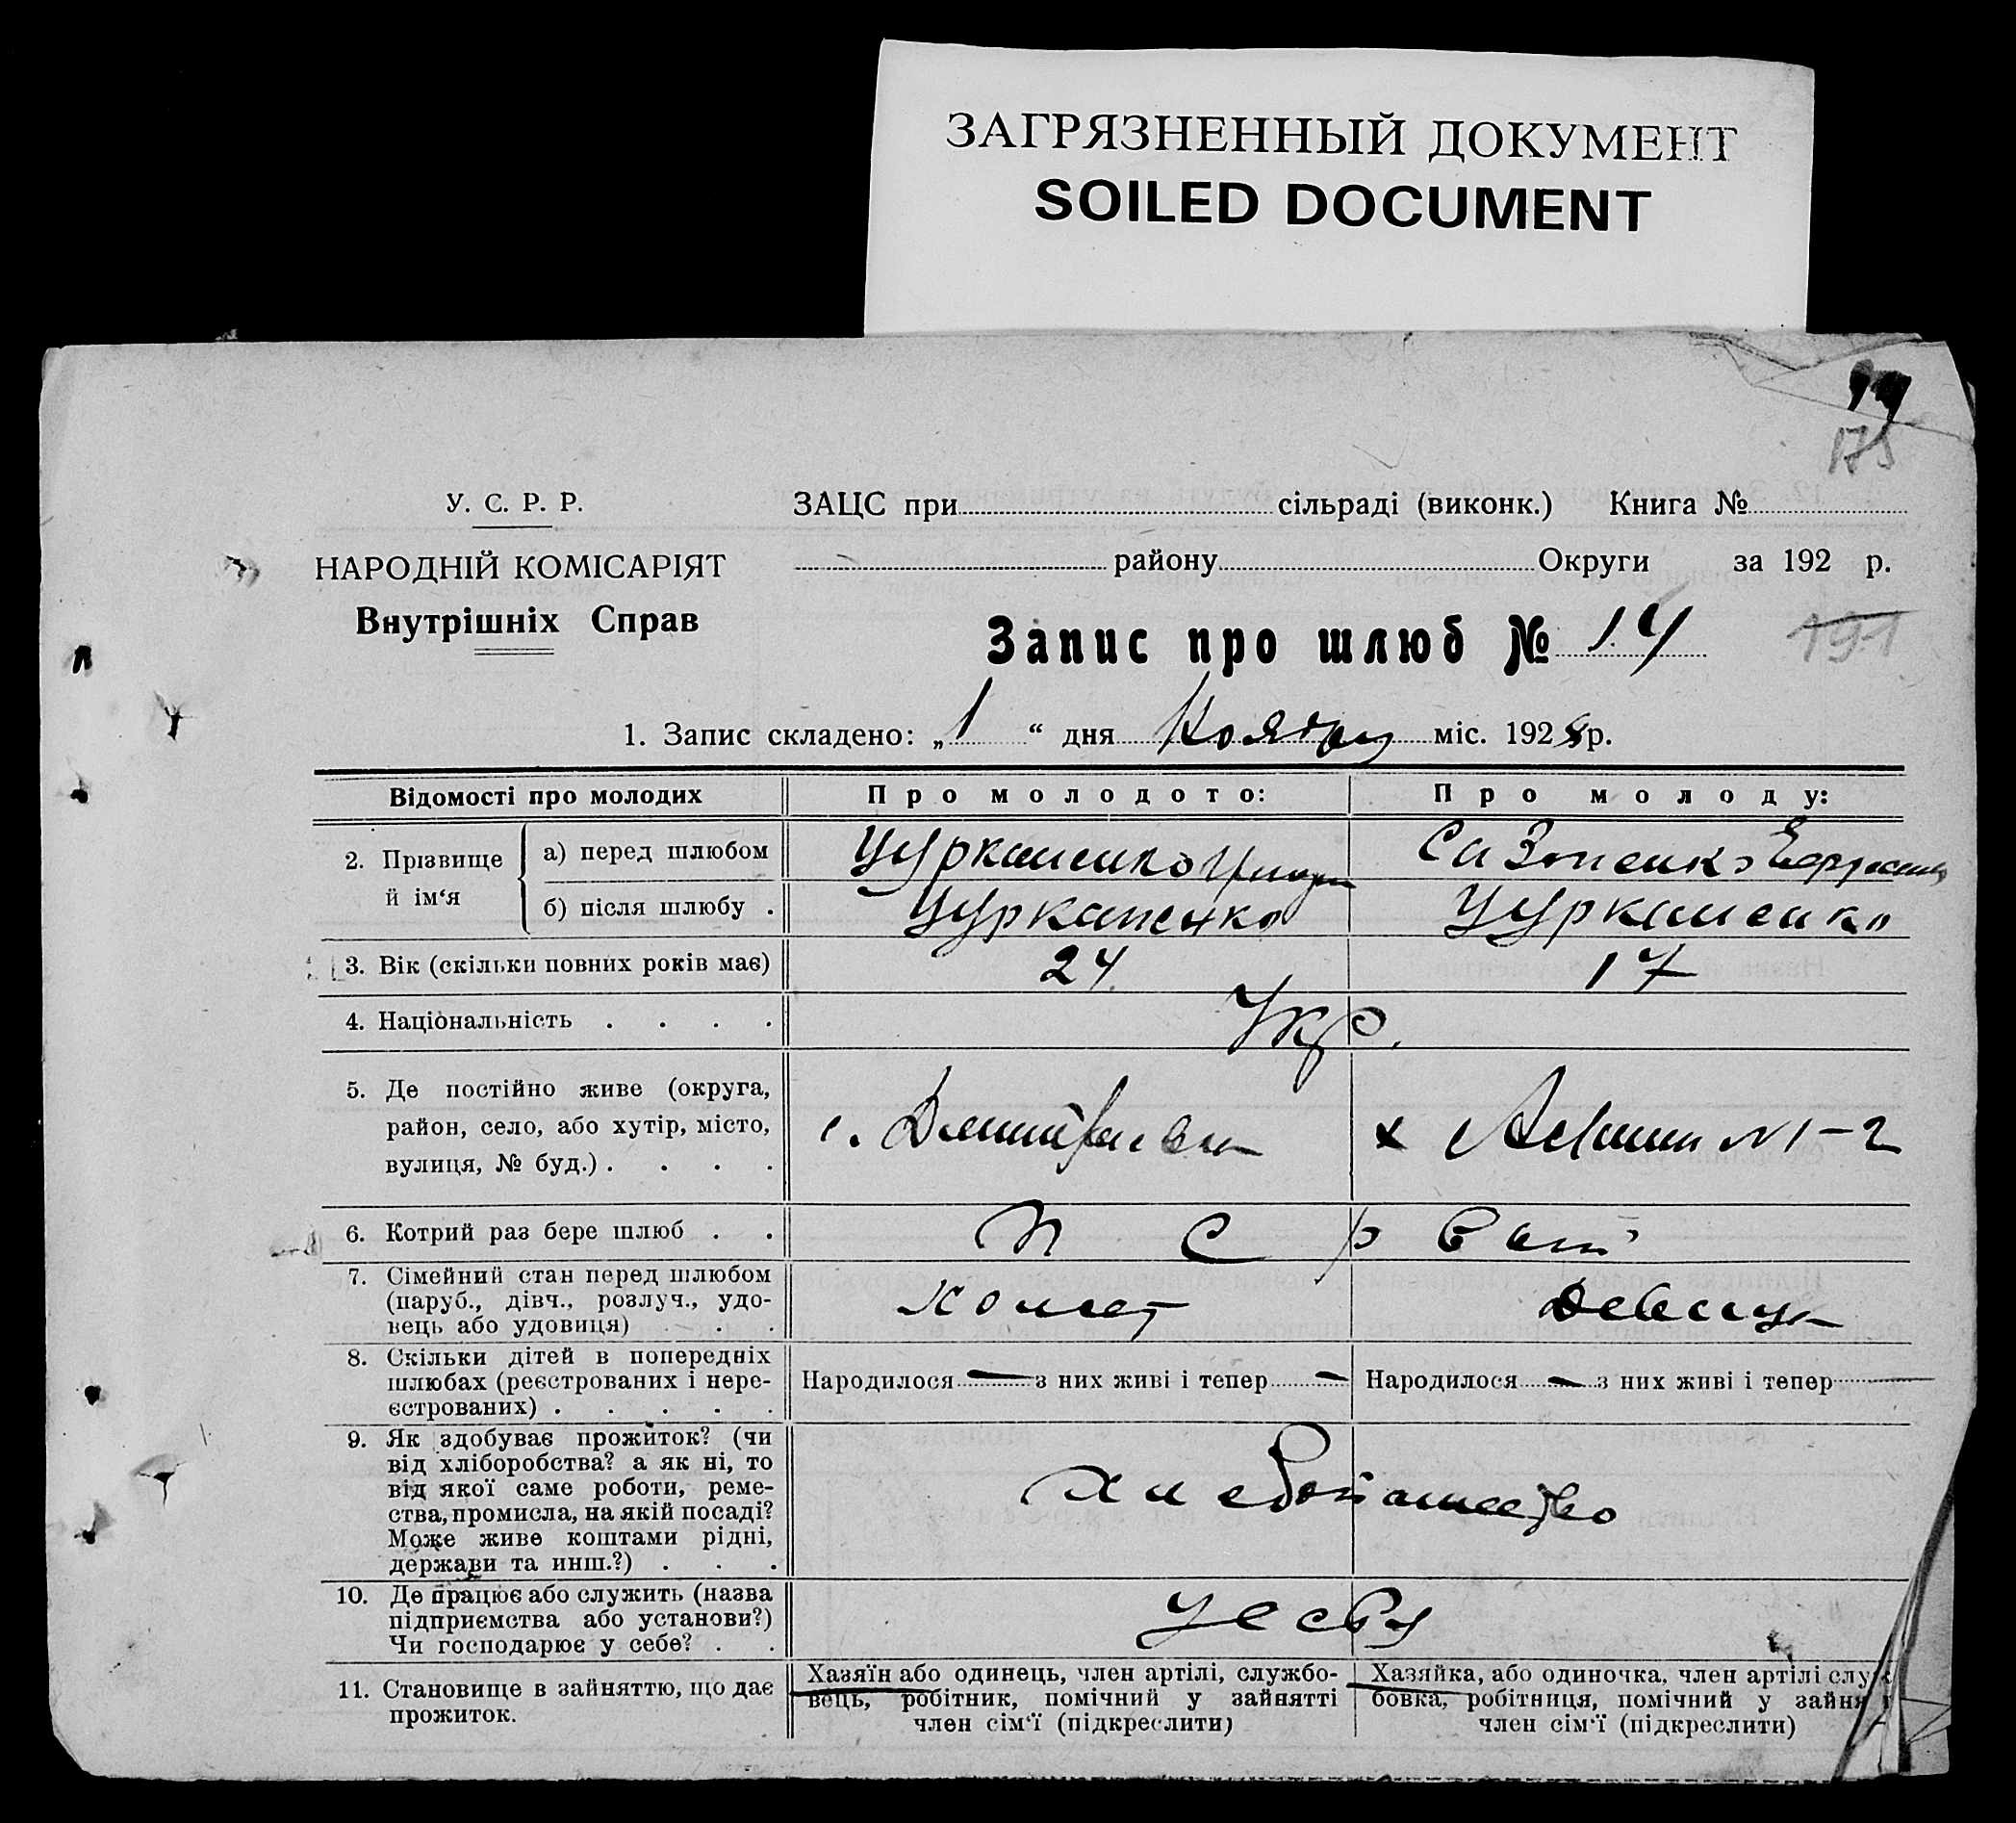 ЗАГРЯЗНЕННЫЙ ДОКУМЕНТ
SOILED DOCUMENT
175
У. С. Р. Р.
НАРОДНІЙ КОМІСАРІЯТ
Внутрішніх Справ
ЗАЦС при сільраді (виконк.) Книга №
району Округи за 192 р.
Запис про шлюб № 14
191
1. Запис складено: „1“ дня Ноября міс. 1928 р.
Відомості про молодих Про молодого: Про молоду:
2. Прізвище й ім‘я
а) перед шлюбом Цурканенко Сазоненко
б) після шлюбу . Цурканенко Цурканенко
3. Вік (скільки повних років має) 24 17
4. Національність . . . . Укр.
5. Де постійно живе (округа,
район, село, або хутір, місто,
вулиця, № буд.) . . . .
с. х №1-2
6. Котрий раз бере шлюб . . Первий
7. Сімейний стан перед шлюбом
(паруб., дівч., розлуч., удо-
вець або удовиця) . .
Холост Девица
8. Скільки дітей в попередніх
шлюбах (реєстрованих і нере-
єстрованих) . . . . .
Народилося — з них живі і тепер — Народилося — з них живі і тепер —
9. Як здобуває прожиток? (чи
від хліборобства? а як ні, то
від якої саме роботи, реме-
ства, промисла, на якій посаді?
Може живе коштами рідні,
держави та инш.?) . . .
Хлебопашество
10. Де працює або служить (назва
підприємства або установи?)
Чи господарює у себе? . .
У себя
11. Становище в зайняттю, що дає
прожиток.
Хазяїн або одинець, член артілі, службо-
вець, робітник, помічний у зайнятті
член сім‘ї (підкреслити)
Хазяйка, або одиночка, член артілі служ
бовка, робітниця, помічний у зайня
член сім‘ї (підкреслити)